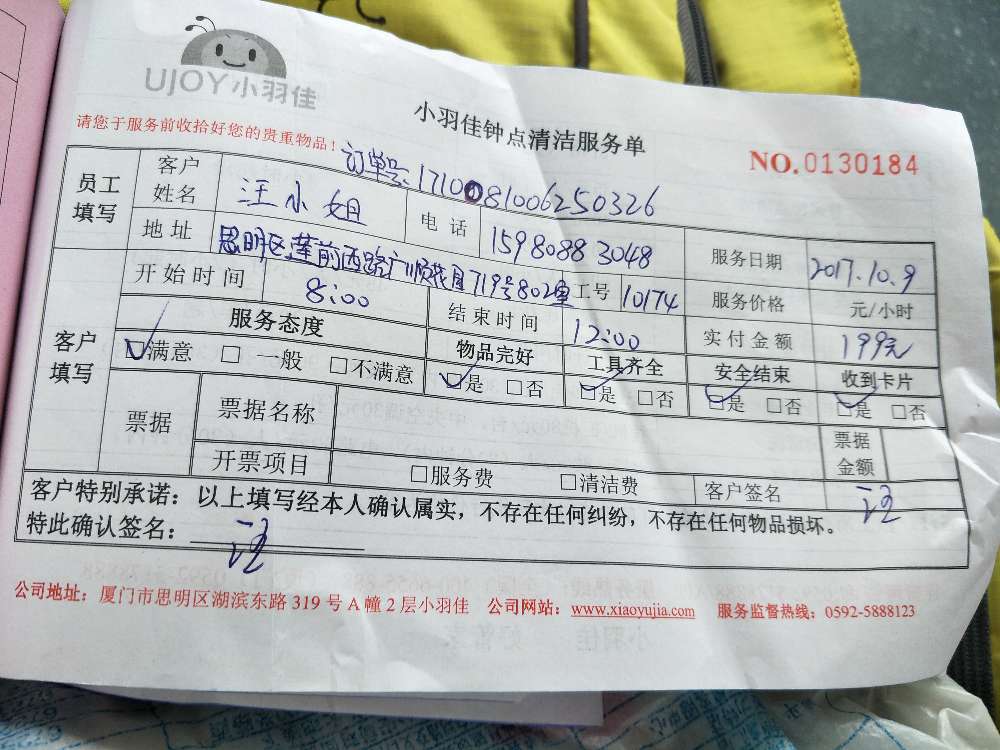 UJOY小羽佳
小羽佳钟点清洁服务单
请您于服务前收拾好您的贵重物品！
NO.0130184
订单号:1710081006250326
员工填写 客户姓名 汪小姐 电话 15980883048 服务日期 2017.10.9
地址 思明区莲前西路广顺花园719号802室 工号 10174 服务价格 元/小时
开始时间 8:00 结束时间 12:00 实付金额 199元
客户填写 服务态度 物品完好 工具齐全 安全结束 收到卡片
☑满意 □一般 □不满意 ☑是 □否 ☑是 □否 ☑是 □否 ☑是 □否
票据 票据名称 票据金额
开票项目 □服务费 □清洁费 客户签名 汪
客户特别承诺：以上填写经本人确认属实，不存在任何纠纷，不存在任何物品损坏。
特此确认签名：汪
公司地址：厦门市思明区湖滨东路319号A幢2层小羽佳 公司网站：www.xiaoyujia.com 服务监督热线：0592-5888123